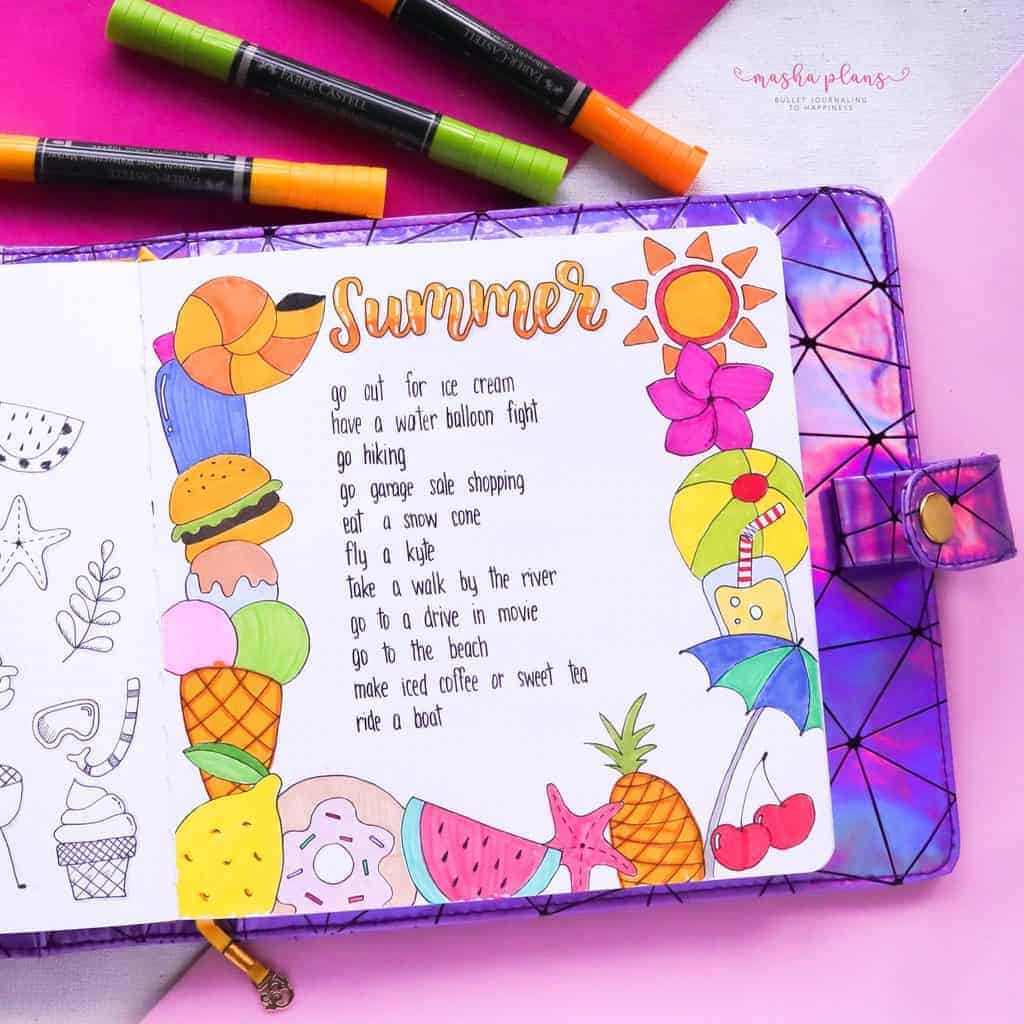 FABER-CASTELL
FABER-CASTELL
FABER-CASTELL
masha plans
BULLET JOURNALING
TO HAPPINESS
Summer
go out for ice cream
have a water balloon fight
go hiking
go garage sale shopping
eat a snow cone
fly a kyte
take a walk by the river
go to a drive in movie
go to the beach
make iced coffee or sweet tea
ride a boat